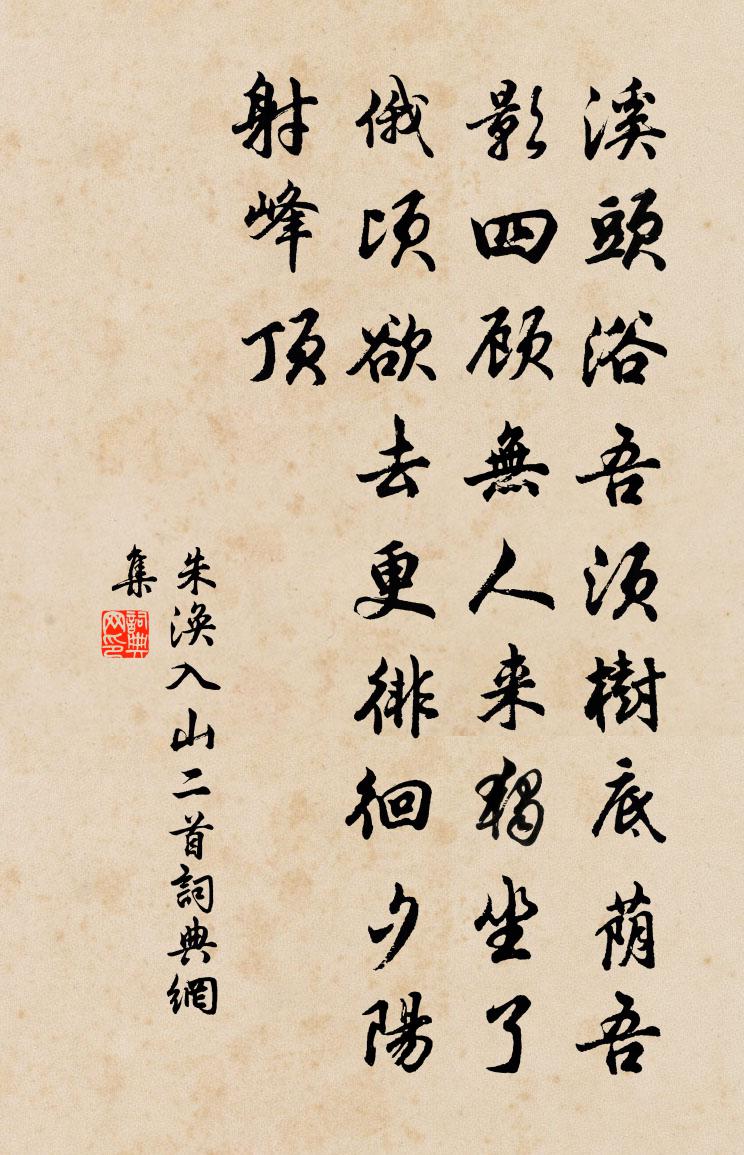 溪頭浴吾須樹底蔭吾
影四顧無人来獨坐了
俄頃欲去更徘徊夕陽
射峰頂
朱渙入山二首詞典網
集
詞典
网印